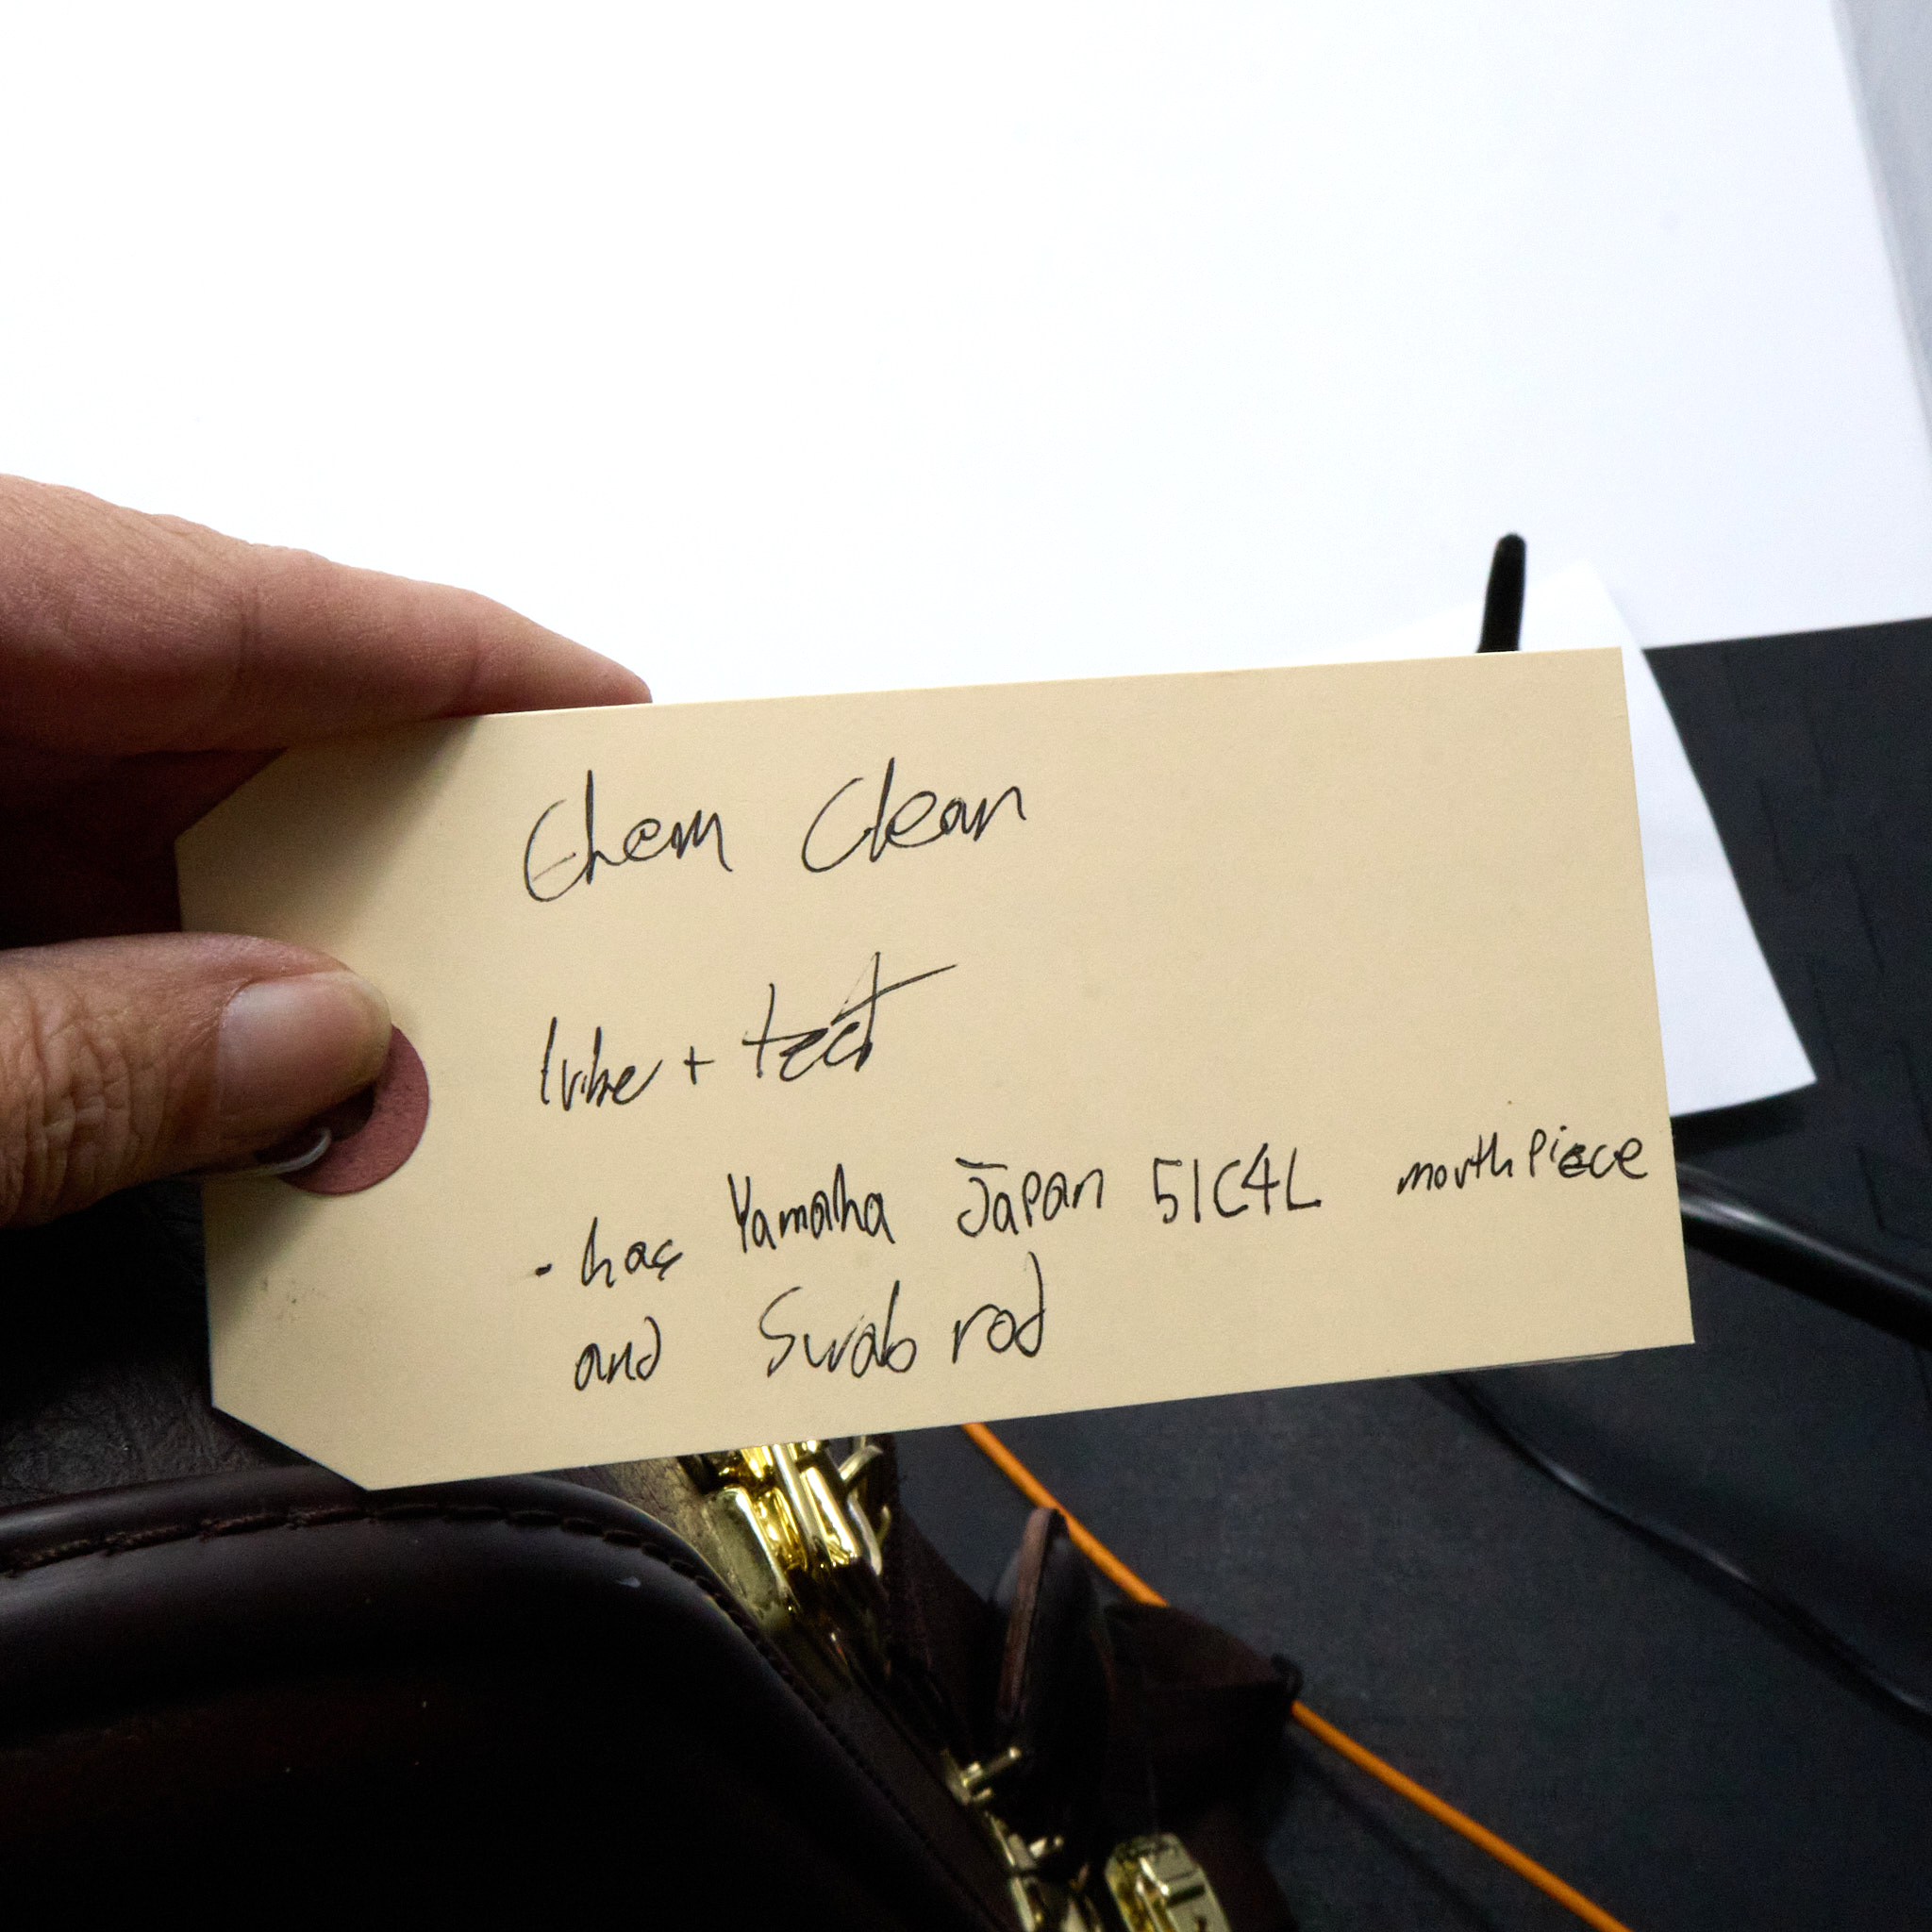 Chem Clean
lube + test
- has Yamaha Japan 51C4L mouthpiece
and Swab rod